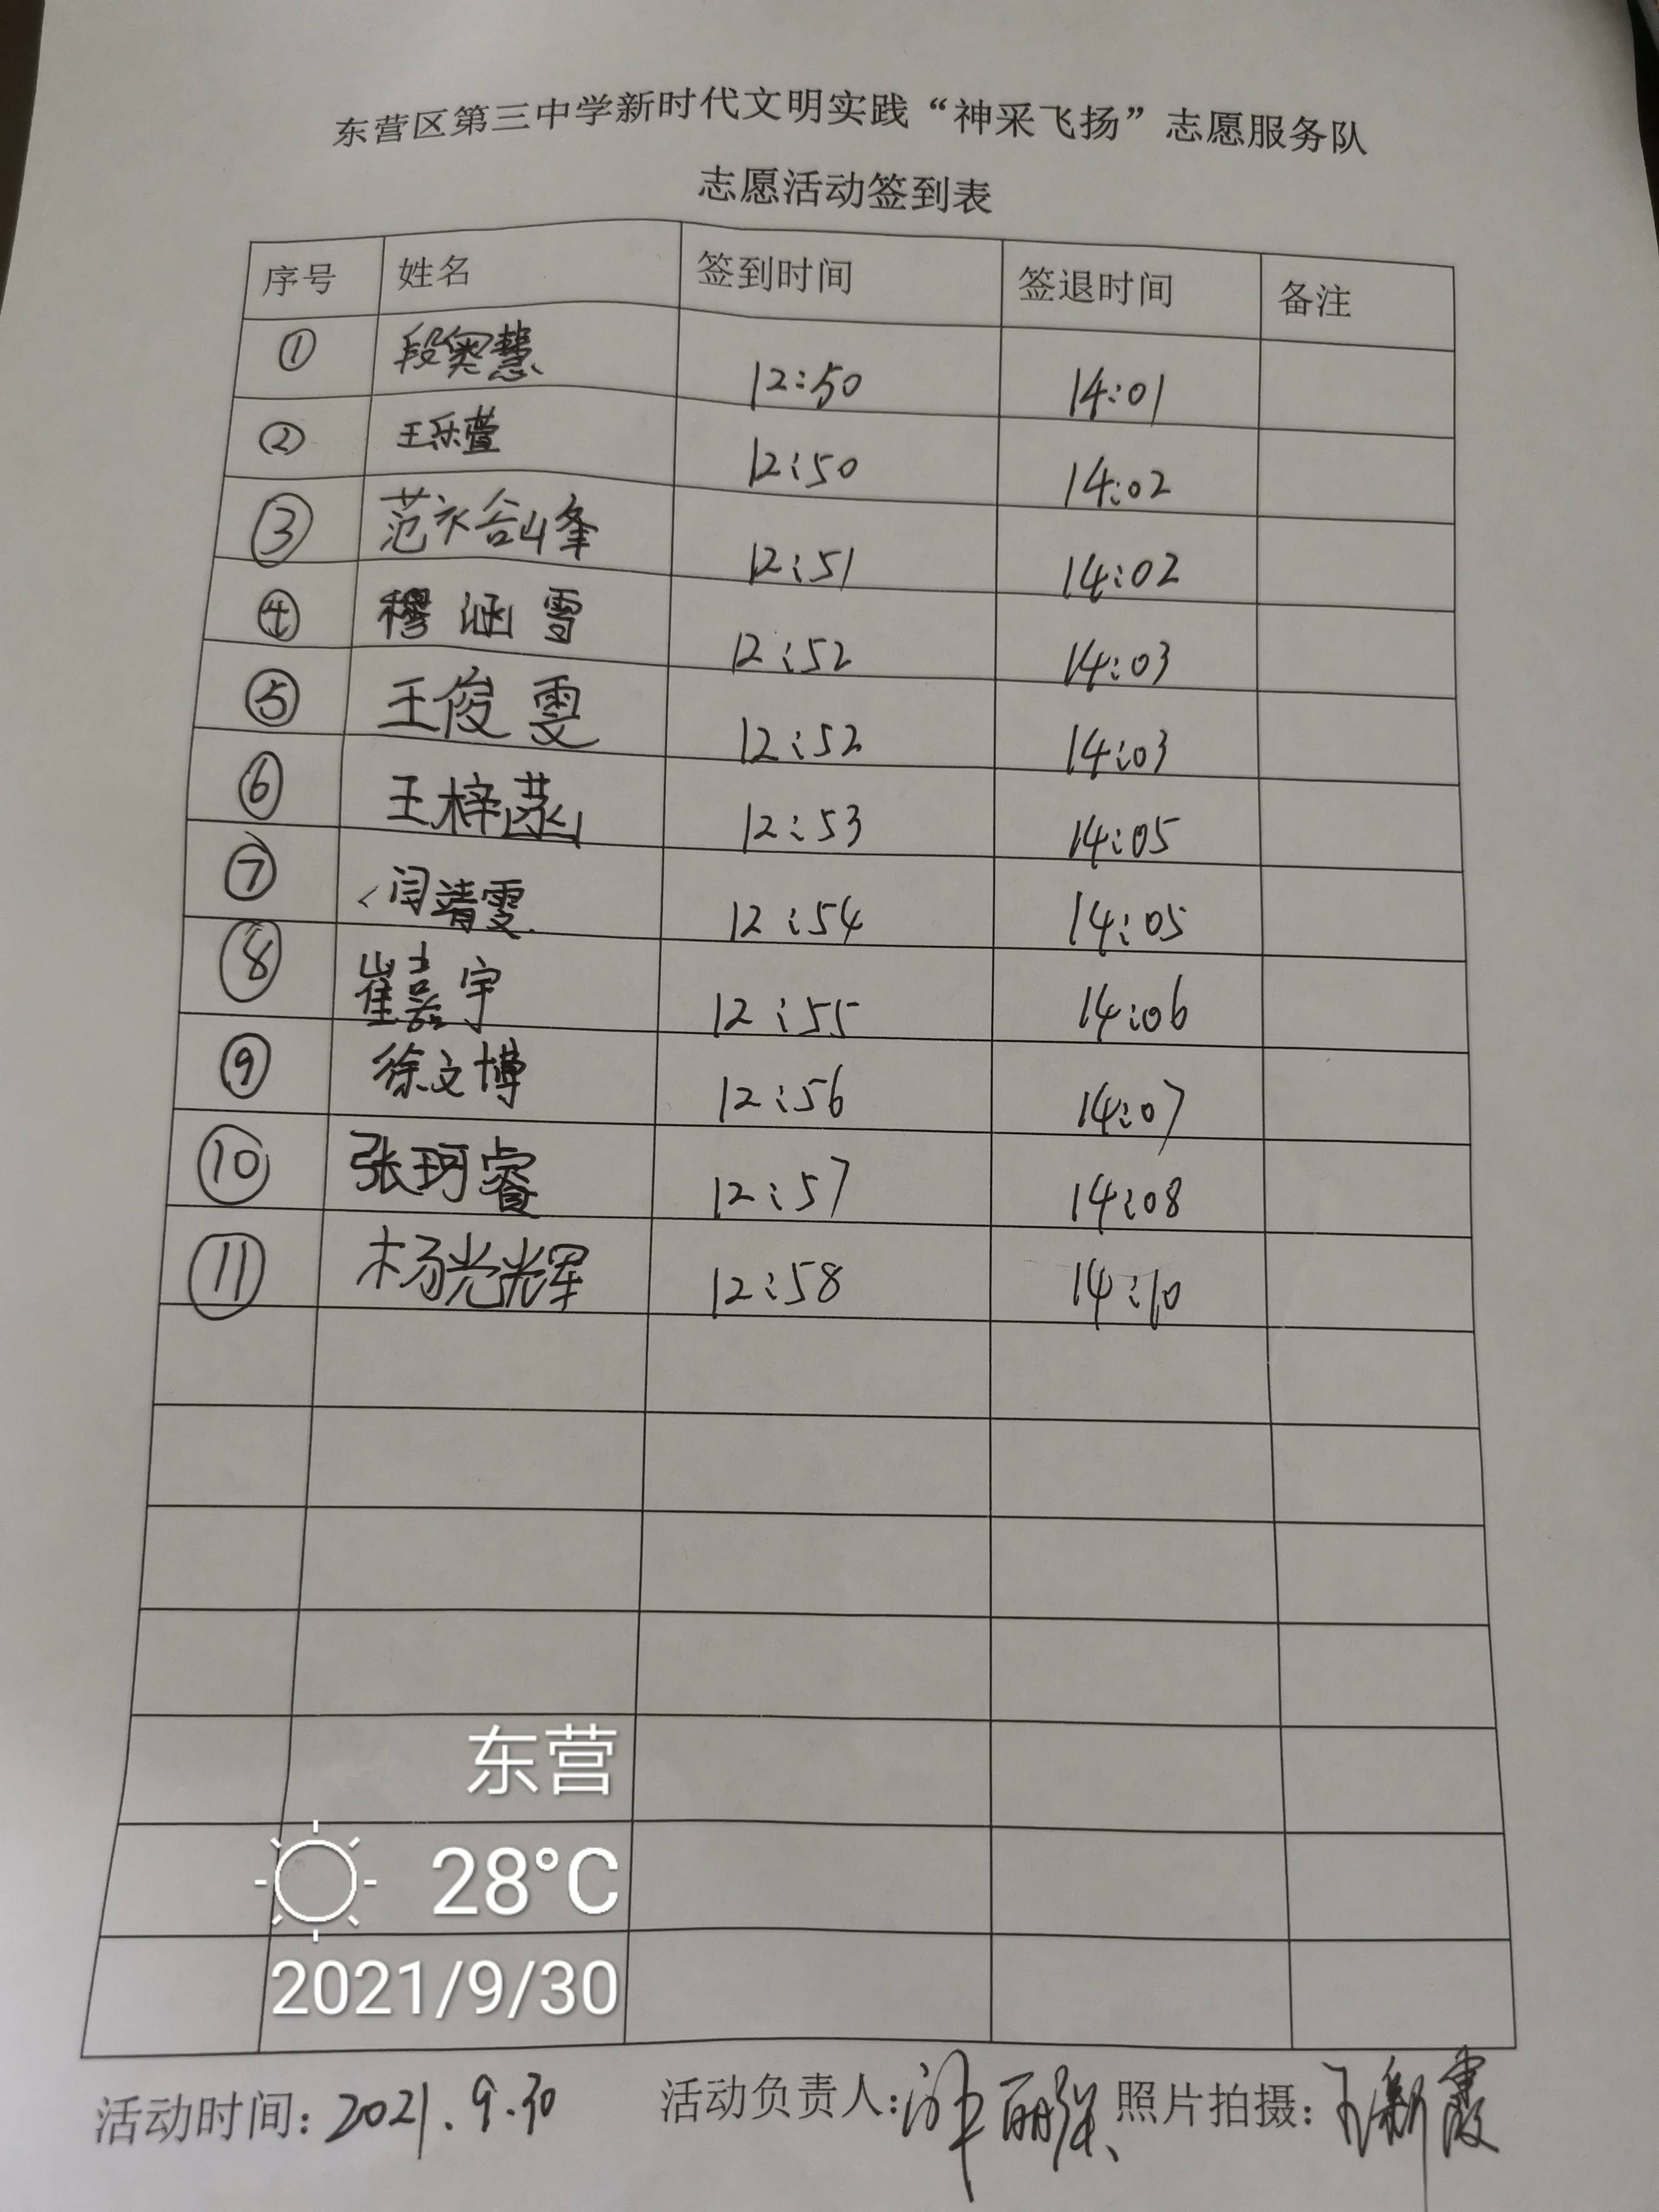 东营区第三中学新时代文明实践“神采飞扬”志愿服务队
志愿活动签到表
序号 姓名 签到时间 签退时间 备注
① 段奕慧 12:50 14:01
② 王乐萱 12:50 14:02
③ 范裕峰 12:51 14:02
④ 穆涵雪 12:52 14:03
⑤ 王俊雯 12:52 14:03
⑥ 王梓菡 12:53 14:05
⑦ 闫靖雯 12:54 14:05
⑧ 崔嘉宇 12:55 14:06
⑨ 徐文博 12:56 14:07
⑩ 张珂睿 12:57 14:08
⑪ 杨光辉 12:58 14:10
东营
28°C
2021/9/30
活动时间：2021.9.30 活动负责人： 照片拍摄：王新霞